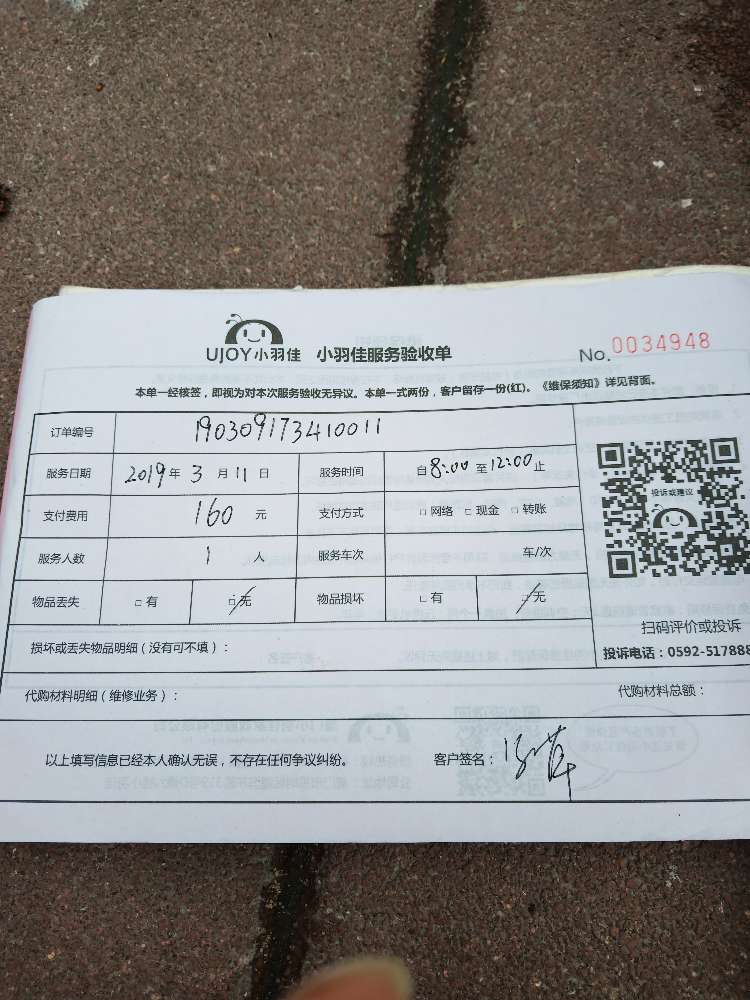 UJOY小羽佳 小羽佳服务验收单 No. 0034948
本单一经核签，即视为对本次服务验收无异议。本单一式两份，客户留存一份(红)。《维保须知》详见背面。
订单编号 190309173410011
服务日期 2019年 3 月 11 日 服务时间 自 8:00 至 12:00 止
投诉或建议
支付费用 160 元 支付方式 □ 网络 □ 现金 □ 转账
服务人数 1 人 服务车次 车/次
物品丢失 □ 有 □ 无 物品损坏 □ 有 □ 无
扫码评价或投诉
损坏或丢失物品明细（没有可不填）： 投诉电话：0592-517888
代购材料明细（维修业务）： 代购材料总额：
以上填写信息已经本人确认无误，不存在任何争议纠纷。 客户签名：